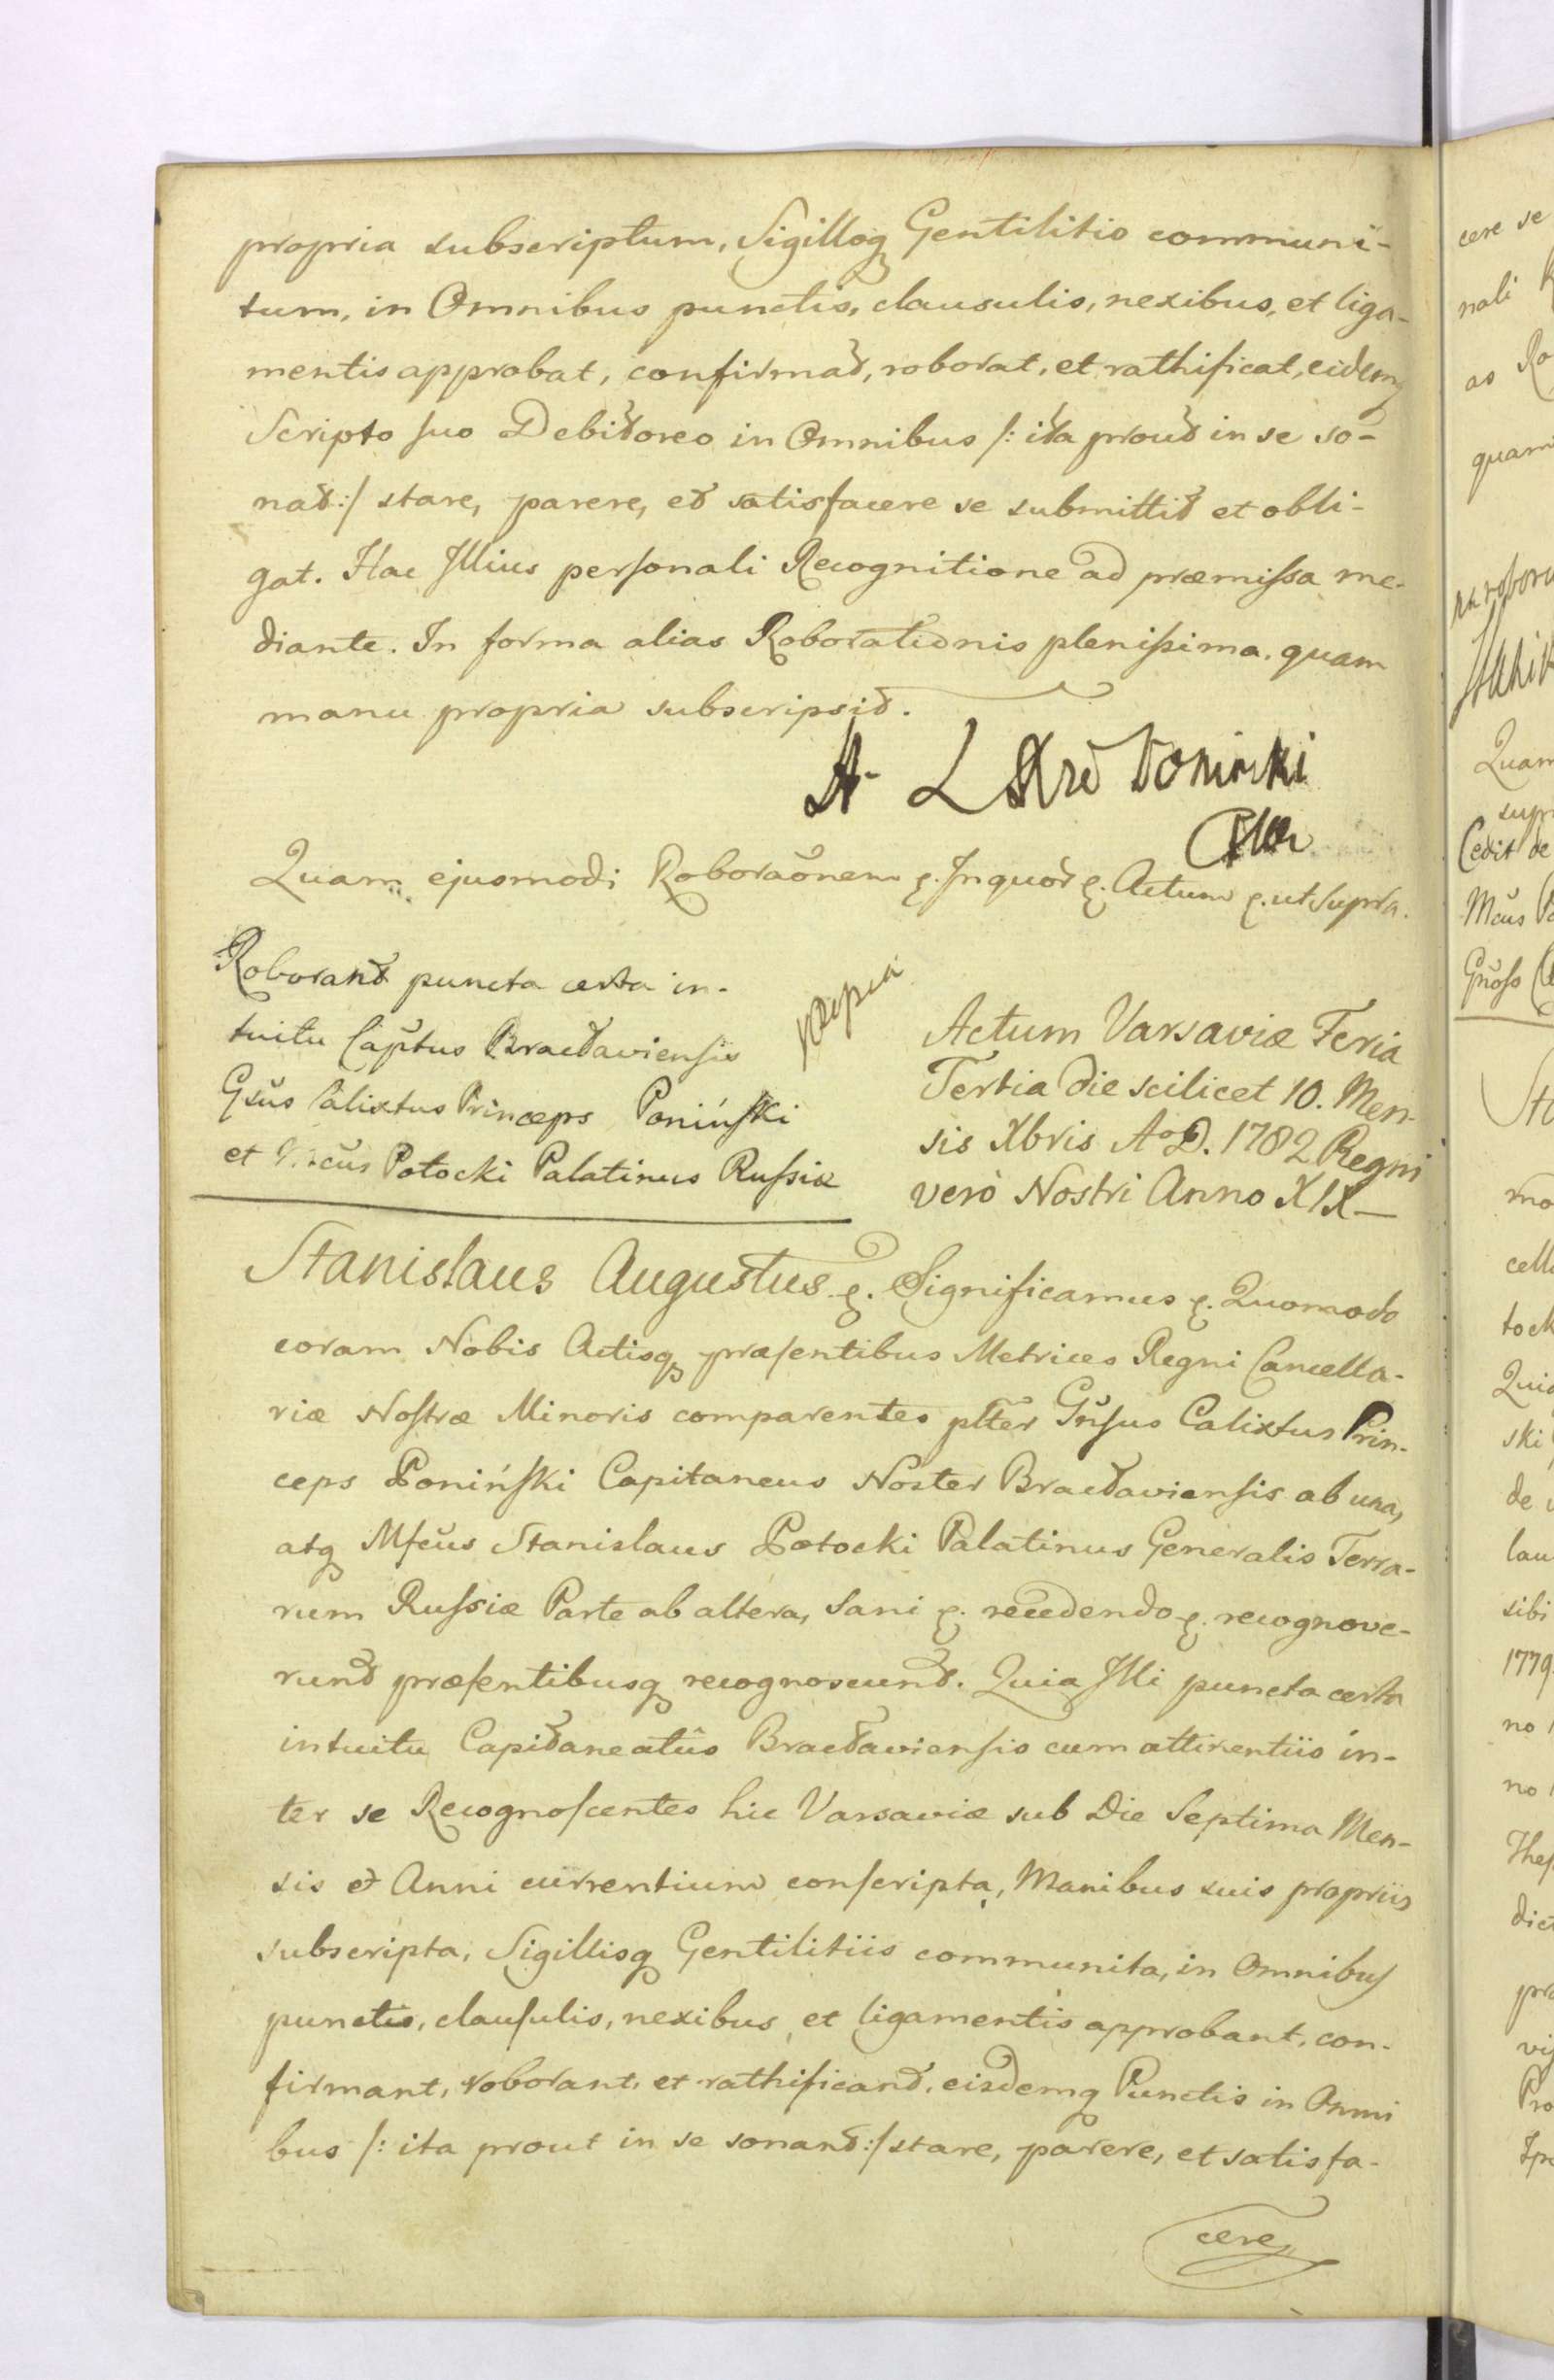 propria subscriptum, Sigilloq Gentilitio communi-
tum, in Omnibus punctis, clausulis, nexibus, et liga-
mentis approbat, confirmat, roborat, et rathificat, eidemq
Scripto suo Debitoreo in Omnibus /: ita prout in se so-
nat :/ stare, parere, et satisfacere se submittit et obli-
gat. Hac Illius personali Recognitione ad præmissa me-
diante. In forma alias Roborationis plenissima. quam
manu propria subscripsit.
A L Poninski
Quam ejusmodi Roboraõnem &. In quor &. Actum &. ut supra.
Roborant puncta certa in-
tuitu Captus Bractaviensis
Gsus Calixtus Princeps Poniński
et Mcus Potocki Palatinus Russiæ
Actum Varsaviæ Feria
Tertia die scilicet 10. Men-
sis Xbris Aº D. 1782 Regni
verò Nostri Anno XIX—
Stanislaus Augustus &. Significamus &. Quomodo
coram Nobis Actisq præsentibus Metrices Regni Cancella-
riæ Nostræ Minoris comparentes plter Gnsus Calixtus Prin-
ceps Poniński Capitaneus Noster Bractaviensis ab una,
atq Mfcus Stanislaus Potocki Palatinus Generalis Terra-
rum Russiæ Parte ab altera, Sani &. recedendo &. recognove-
runt præsentibusq recognoscunt. Quia Illi puncta certa
intuitu Capitaneatûs Bractaviensis cum attinentiis in-
ter se Recognoscentes hic Varsaviæ sub Die Septima Men-
sis et Anni currentium conscripta, Manibus suis propriis
subscripta, Sigillisq Gentilitiis communita, in Omnibus
punctis, clausulis, nexibus, et ligamentis approbant, con-
firmant, roborant, et rathificant, eisdemq Punctis in Omni
bus /: ita prout in se sonant :/ stare, parere, et satisfa-
cere